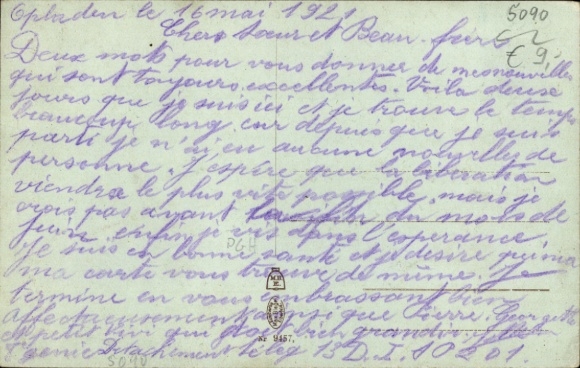 Opladen le 16 mai 1921
5090
Chers Sœur et Beau-frère
€ 9,-
Deux mots pour vous donner de mes nouvelles
qui sont toujours excellentes. Voila deux
jours que je suis ici et je trouve le temps
beaucoup long car depuis que je suis
parti je n'ai eu aucune nouvelles de
personne. J'espère que la libération
viendra le plus vite possible, mais je
crois pas avant la fin du mois de
juin, enfin je vis dans l'espérance
Je suis en bonne santé et je désire que ma
ma carte vous trouve de même. Je
termine en vous embrassant bien
affectueusement ainsi que Pierre, Georgette
et petit qui doit bien grandir.
Génie Détachement 13 D.I. 10201.
Nr 9457.
5090